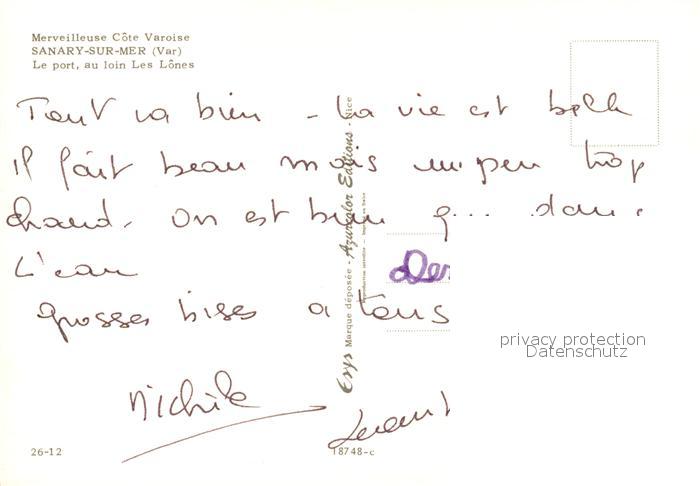 Merveilleuse Côte Varoise
SANARY-SUR-MER (Var)
Le port, au loin Les Lônes
Tout va bien - La vie est belle
Il fait beau mais un peu trop
chaud. On est bien q... dans
L'eau
grosses bises a tous
Michèle
26-12
18748-c
Erys Marque déposée - Azurcolor Editions Nice
privacy protection
Datenschutz